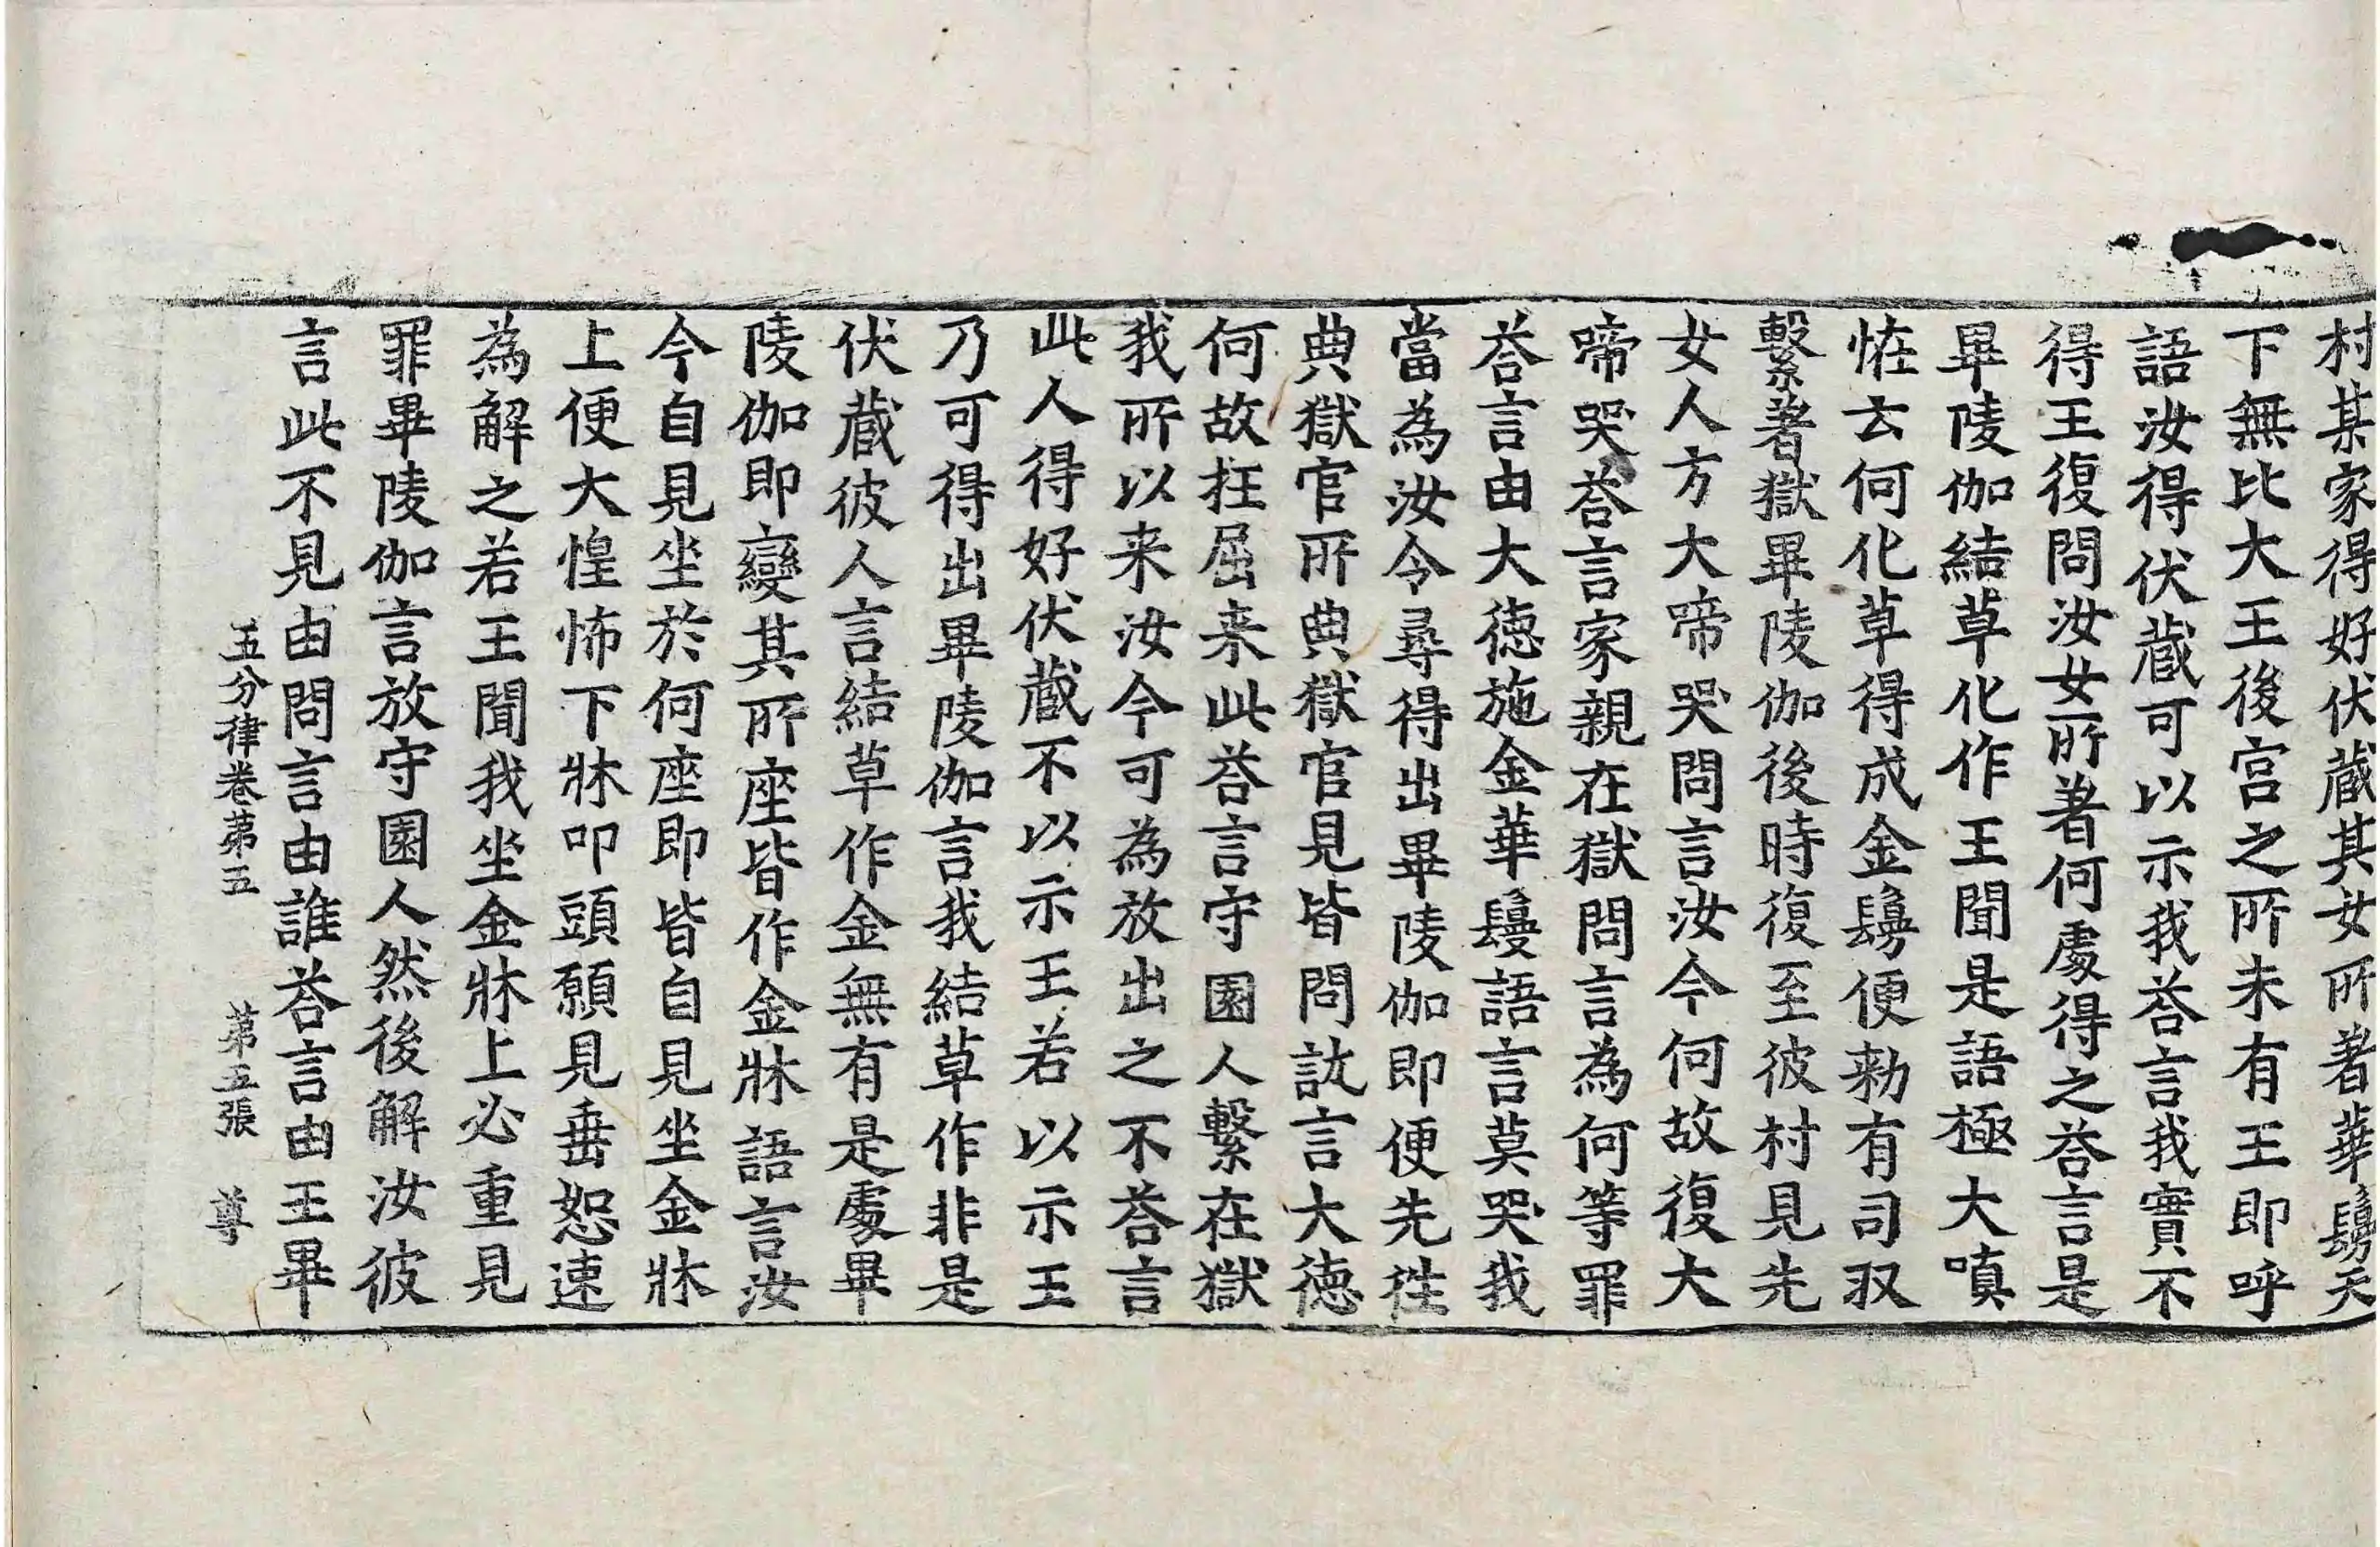 村某家得好伏藏其女所著華鬘天
下無比大王後宮之所未有王即呼
語汝得伏藏可以示我荅言我實不
得王復問汝女所著何處得之荅言是
畢陵伽結草化作王聞是語極大嗔
恠云何化草得成金鬘便勑有司収
繫著獄畢陵伽後時復至彼村見先
女人方大啼哭問言汝今何故復大
啼哭荅言家親在獄問言為何等罪
荅言由大德施金華鬘語言莫哭我
當為汝令尋得出畢陵伽即便先徃
典獄官所典獄官見皆問訊言大德
何故抂屈来此荅言守園人繫在獄
我所以来汝今可為放出之不荅言
此人得好伏藏不以示王若以示王
乃可得出畢陵伽言我結草作非是
伏藏彼人言結草作金無有是處畢
陵伽即變其所座皆作金牀語言汝
今自見坐於何座即皆自見坐金牀
上便大惶怖下牀叩頭願見垂恕速
為解之若王聞我坐金牀上必重見
罪畢陵伽言放守園人然後解汝彼
言此不見由問言由誰荅言由王畢
五分律卷苐五 苐五張 尊